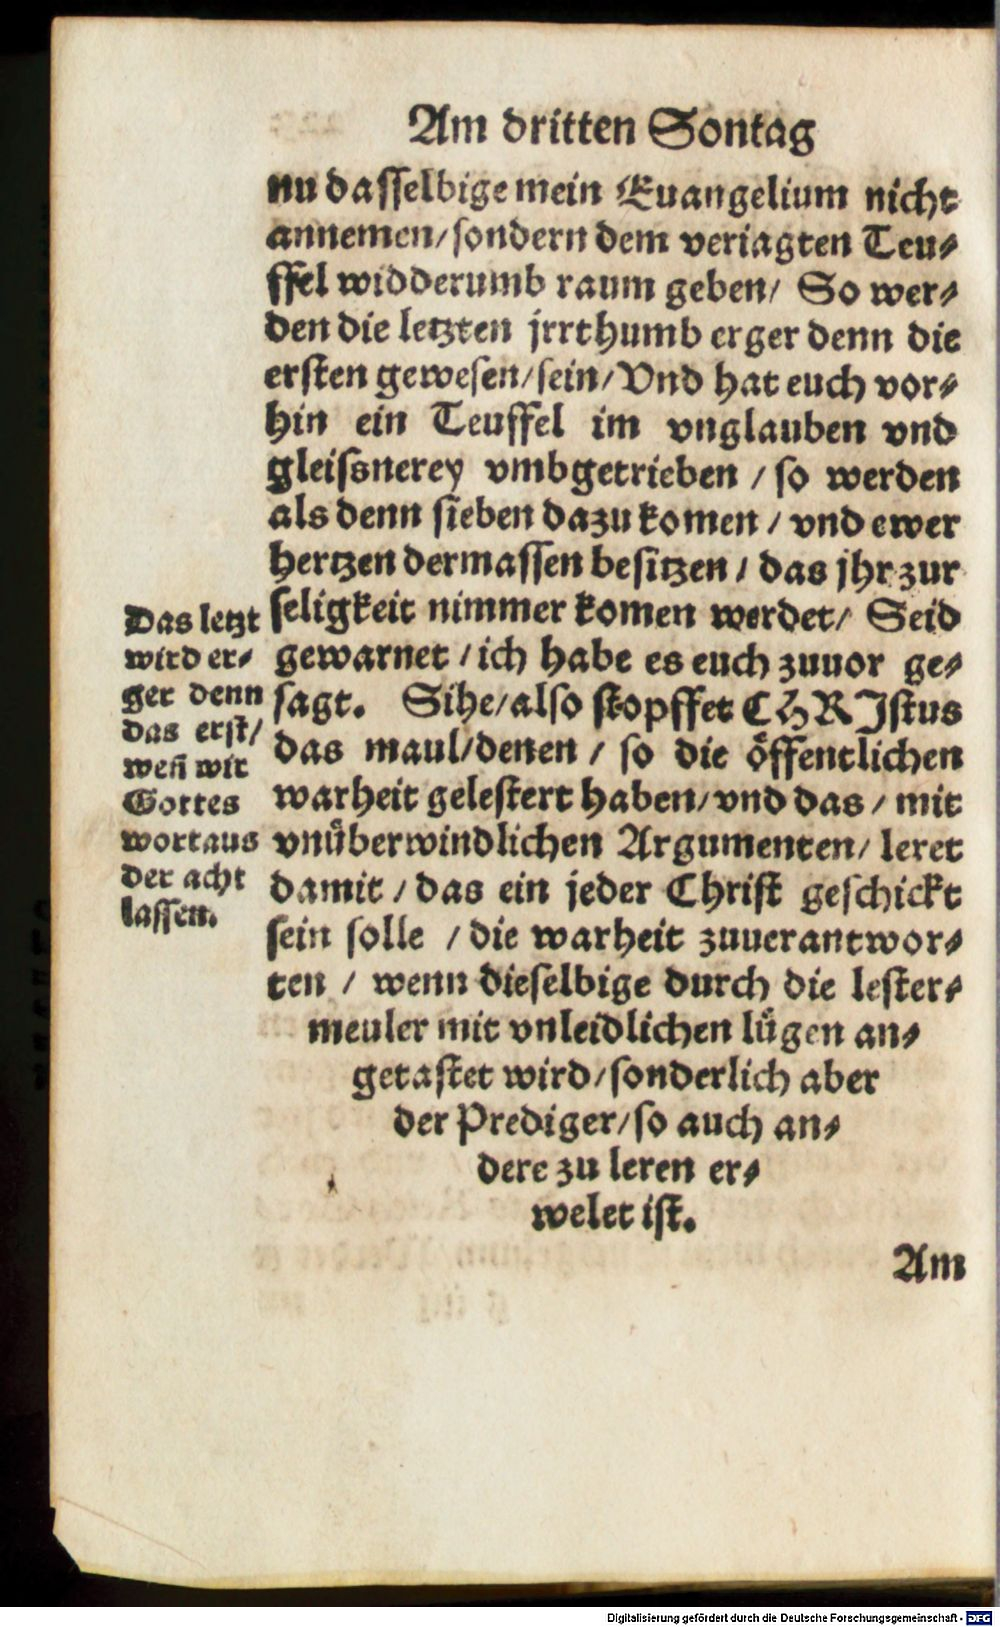 Am dritten Sontag
nu dasselbige mein Euangelium nicht
annemen/sondern dem veriagten Teu⸗
ffel widderumb raum geben/ So wer⸗
den die letzten jrrthumb erger denn die
ersten gewesen/sein/Vnd hat euch vor⸗
hin ein Teuffel im vnglauben vnd
gleissnerey vmbgetrieben / so werden
als denn sieben dazu komen / vnd ewer
hertzen dermassen besitzen / das jhr zur
seligkeit nimmer komen werdet/ Seid
gewarnet / ich habe es euch zuuor ge⸗
sagt. Sihe/also stopffet CHRJstus
das maul/denen / so die öffentlichen
warheit gelestert haben/vnd das / mit
vnüberwindlichen Argumenten/ leret
damit / das ein jeder Christ geschickt
sein solle / die warheit zuuerantwor⸗
ten / wenn dieselbige durch die lester⸗
meuler mit vnleidlichen lügen an⸗
getastet wird/sonderlich aber
der Prediger/so auch an⸗
dere zu leren er⸗
welet ist.
Am
Das letzt
wird er⸗
ger denn
das erst/
weñ wir
Gottes
wort aus
der acht
lassen.
Digitalisierung gefördert durch die Deutsche Forschungsgemeinschaft - DFG